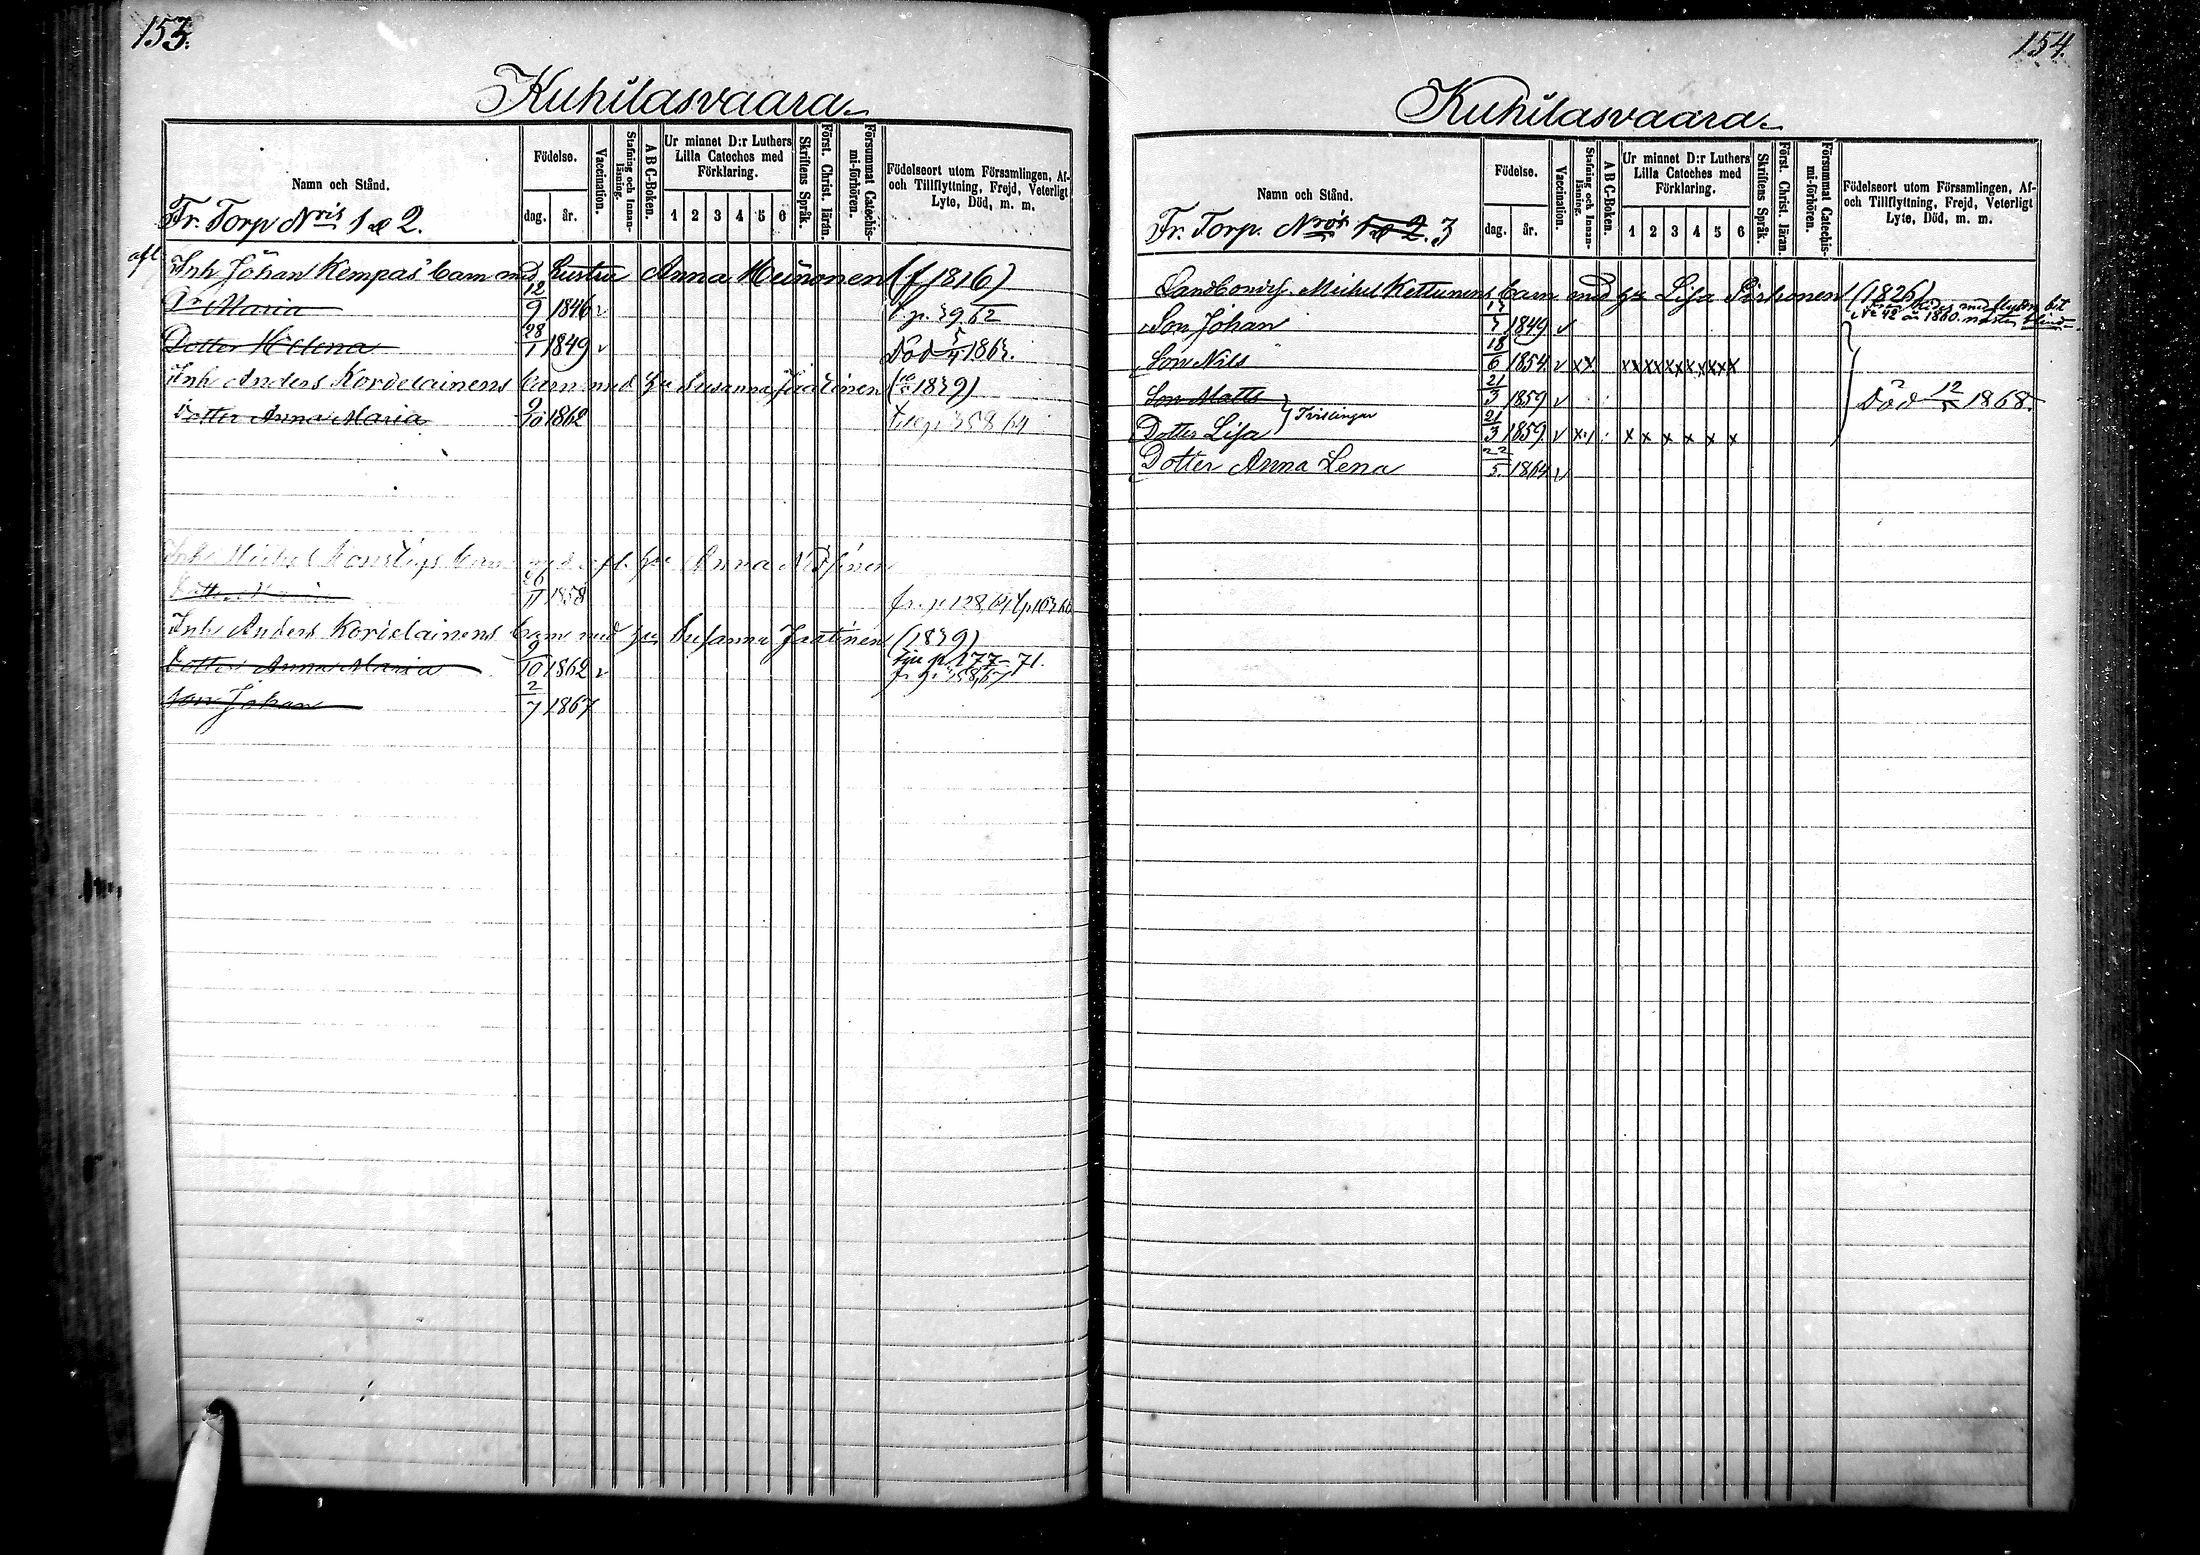 153.
Kuhilasvaara
Namn och Stånd.
Födelse.
dag. år.
Vaccination.
Stafning och Innanläsning.
A B C-Boken.
Ur minnet D:r Luthers Lilla Cateches med Förklaring.
1 2 3 4 5 6
Skriftens Språk.
Först. Christ. läran.
Försummat Catechismi-förhören.
Födelseort utom Församlingen, Af- och Tillflyttning, Frejd, Veterligt Lyte, Död, m. m.
Fr. Torp Nris 1 & 2.
afl
Inh Johan Kempas' barn med hustru Anna Heinonen (f 1816)
Dr Maria 12/9 1846 v
Dotter Helena 28/1 1849 v Död 1863.
Inh Anders Kordelainens barn med hu Susanna Jaatinen (1839)
Dotter Anna Maria 9/10 1862
Inh Michel barn med afl. hu Anna
Dotter Maria 26/11 1858 fr. p 128,
Inh Anders Kordelainens barn med hu Susanna Jaatinen (1839)
Dotter Anna Maria 9/10 1862 v p 177-71.
Son Johan 2/7 1867
154.
Kuhilasvaara
Namn och Stånd.
Födelse.
dag. år.
Vaccination.
Stafning och Innanläsning.
A B C-Boken.
Ur minnet D:r Luthers Lilla Cateches med Förklaring.
1 2 3 4 5 6
Skriftens Språk.
Först. Christ. läran.
Försummat Catechismi-förhören.
Födelseort utom Församlingen, Af- och Tillflyttning, Frejd, Veterligt Lyte, Död, m. m.
Fr. Torp. Nris 1 & 2. 3
Landbond. Michel Kettunens barn med hu Lisa Piskonen (1826)
Son Johan 1849 v
Son Nils 18/6 1854 v xx xxxxxxxxxx
Son Matts 21/3 1859 v Död 12/5 1868.
Tvillingar
Dotter Lisa 21/3 1859 v x x x x x x
Dotter Anna Lena 22/5 1864 v